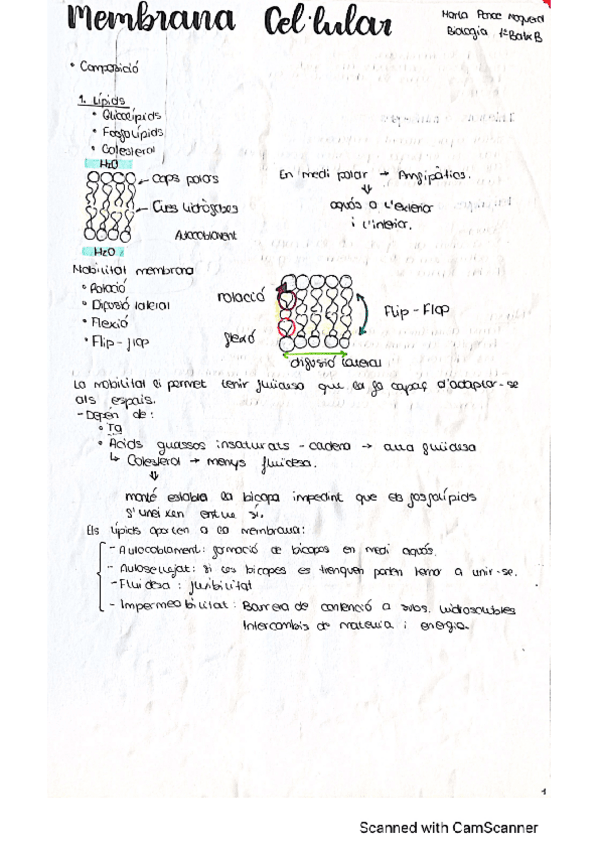 Membrana Cel·lular
Maria Ponce Noguera
Biologia 1º Batx B
• Composició
1. Lípids
• Glucolípids
• Fosfolípids
• Colesterol
H2O
Caps polars
Cues hidròfobes
Autocoblament
H2O
En medi polar → Amfipàtics.
aquós a l'exterior
i l'interior.
Mobilitat membrana
• Rotació
• Difusió lateral
• Flexió
• Flip-flop
rotació
flexió
Flip-Flop
difusió lateral
La mobilitat li permet tenir fluidesa que la fa capaç d'adaptar-se
als espais.
- Depèn de:
• Tª
• Àcids grassos insaturats - cadena → alta fluidesa
↳ Colesterol → menys fluidesa.
manté estable la bicapa impedint que els fosfolípids
s'uneixen entre sí.
Els lípids aporten a la membrana:
- Autocoblament: formació de bicapes en medi aquós.
- Autosegellat: si les bicapes es trenquen poden tornar a unir-se.
- Fluidesa: flexibilitat
- Impermeabilitat: Barrera de contenció a subs. hidrosolubles
Intercanvis de matèria i energia.
1
Scanned with CamScanner